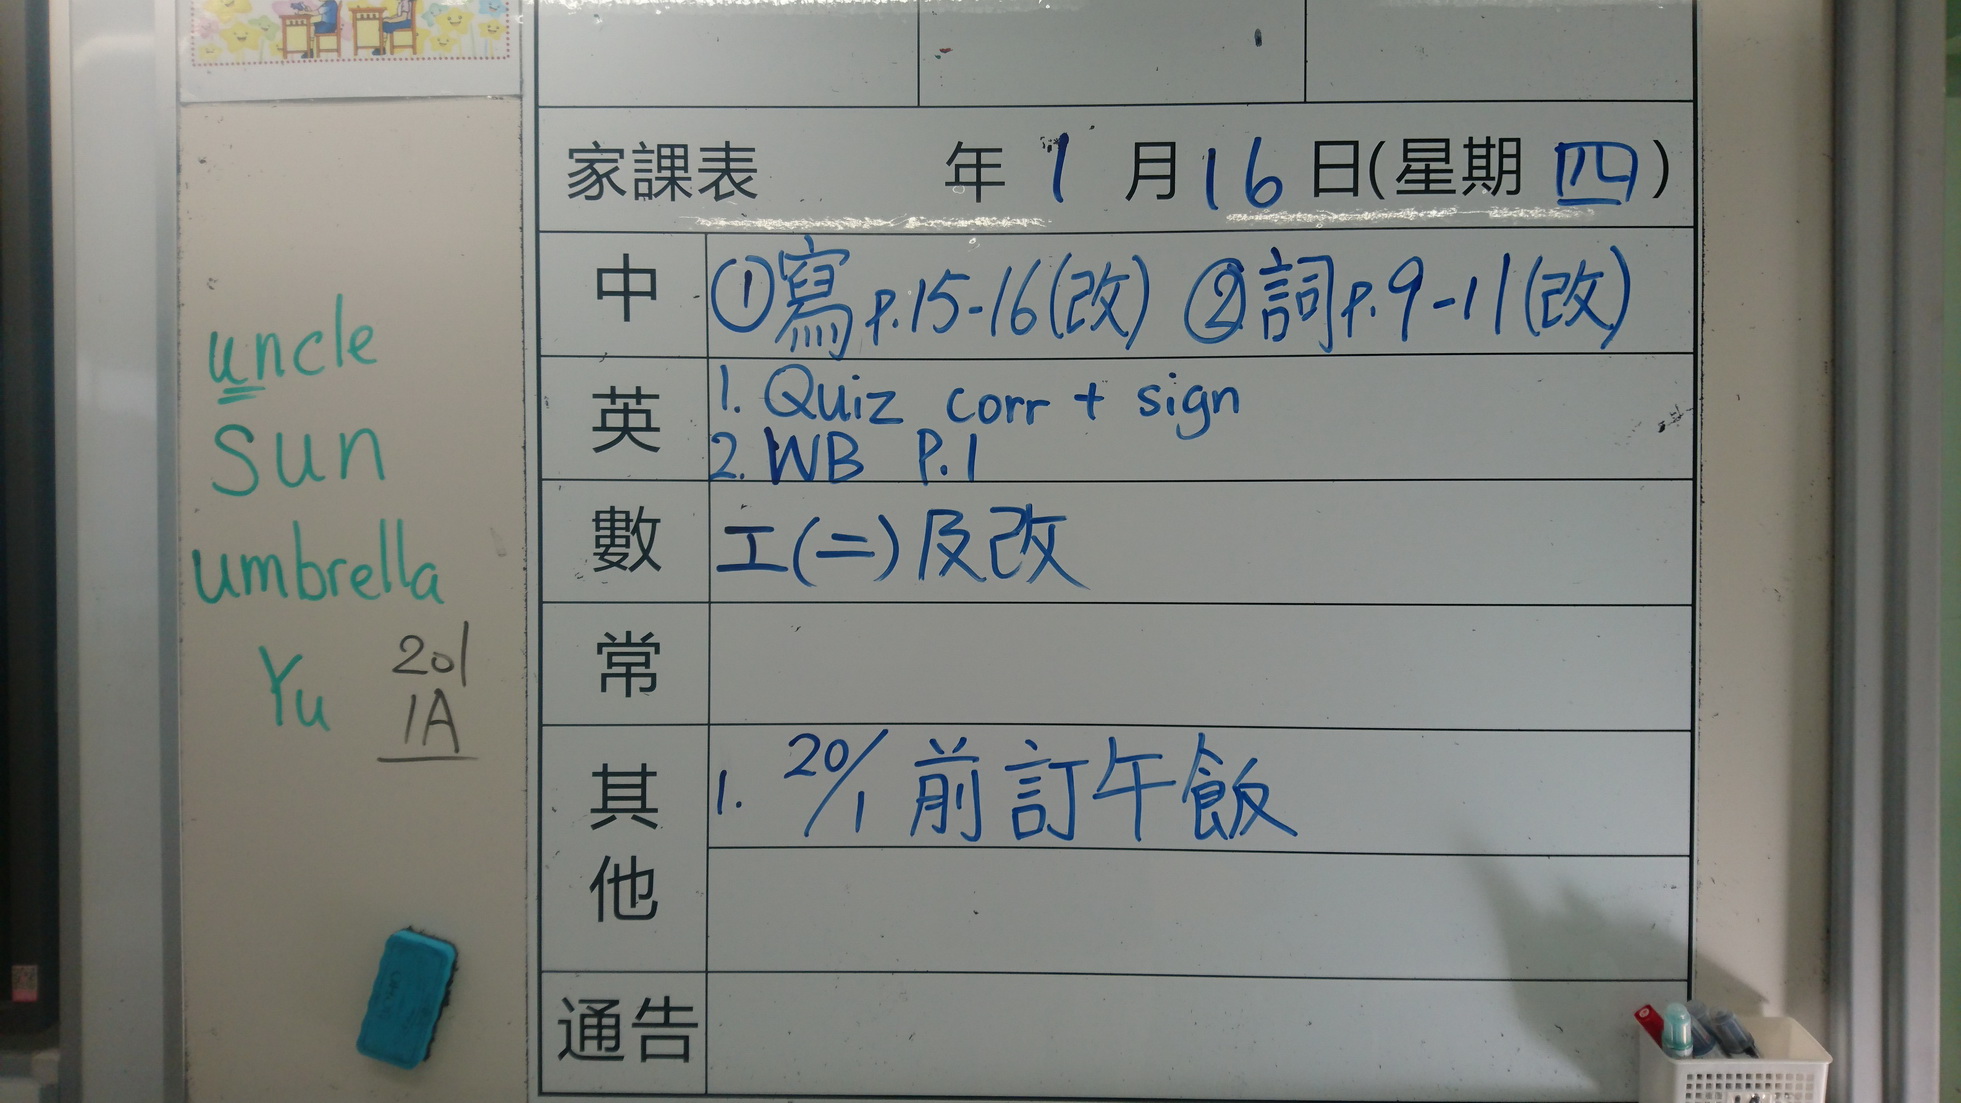 家課表 年 1 月 16 日(星期 四)
中 ①寫p.15-16(改) ②詞p.9-11(改)
英 1. Quiz corr + sign
2. WB P.1
數 工(二)及改
常
其他 1. 20/1 前訂午飯
通告
uncle
Sun
umbrella
Yu
201
1A